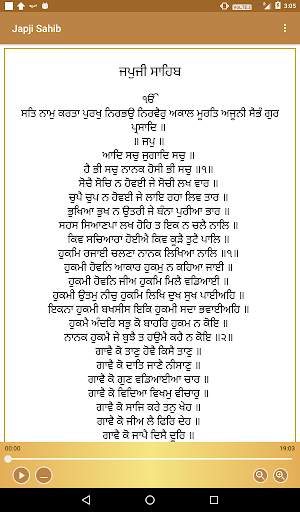 3:05
Japji Sahib
ਜਪੁਜੀ ਸਾਹਿਬ
ੴ
ਸਤਿ ਨਾਮੁ ਕਰਤਾ ਪੁਰਖੁ ਨਿਰਭਉ ਨਿਰਵੈਰੁ ਅਕਾਲ ਮੂਰਤਿ ਅਜੂਨੀ ਸੈਭੰ ਗੁਰ
ਪ੍ਰਸਾਦਿ ॥
॥ ਜਪੁ ॥
ਆਦਿ ਸਚੁ ਜੁਗਾਦਿ ਸਚੁ ॥
ਹੈ ਭੀ ਸਚੁ ਨਾਨਕ ਹੋਸੀ ਭੀ ਸਚੁ ॥੧॥
ਸੋਚੈ ਸੋਚਿ ਨ ਹੋਵਈ ਜੇ ਸੋਚੀ ਲਖ ਵਾਰ ॥
ਚੁਪੈ ਚੁਪ ਨ ਹੋਵਈ ਜੇ ਲਾਇ ਰਹਾ ਲਿਵ ਤਾਰ ॥
ਭੁਖਿਆ ਭੁਖ ਨ ਉਤਰੀ ਜੇ ਬੰਨਾ ਪੁਰੀਆ ਭਾਰ ॥
ਸਹਸ ਸਿਆਣਪਾ ਲਖ ਹੋਹਿ ਤ ਇਕ ਨ ਚਲੈ ਨਾਲਿ ॥
ਕਿਵ ਸਚਿਆਰਾ ਹੋਈਐ ਕਿਵ ਕੂੜੈ ਤੁਟੈ ਪਾਲਿ ॥
ਹੁਕਮਿ ਰਜਾਈ ਚਲਣਾ ਨਾਨਕ ਲਿਖਿਆ ਨਾਲਿ ॥੧॥
ਹੁਕਮੀ ਹੋਵਨਿ ਆਕਾਰ ਹੁਕਮੁ ਨ ਕਹਿਆ ਜਾਈ ॥
ਹੁਕਮੀ ਹੋਵਨਿ ਜੀਅ ਹੁਕਮਿ ਮਿਲੈ ਵਡਿਆਈ ॥
ਹੁਕਮੀ ਉਤਮੁ ਨੀਚੁ ਹੁਕਮਿ ਲਿਖਿ ਦੁਖ ਸੁਖ ਪਾਈਅਹਿ ॥
ਇਕਨਾ ਹੁਕਮੀ ਬਖਸੀਸ ਇਕਿ ਹੁਕਮੀ ਸਦਾ ਭਵਾਈਅਹਿ ॥
ਹੁਕਮੈ ਅੰਦਰਿ ਸਭੁ ਕੋ ਬਾਹਰਿ ਹੁਕਮ ਨ ਕੋਇ ॥
ਨਾਨਕ ਹੁਕਮੈ ਜੇ ਬੁਝੈ ਤ ਹਉਮੈ ਕਹੈ ਨ ਕੋਇ ॥੨॥
ਗਾਵੈ ਕੋ ਤਾਣੁ ਹੋਵੈ ਕਿਸੈ ਤਾਣੁ ॥
ਗਾਵੈ ਕੋ ਦਾਤਿ ਜਾਣੈ ਨੀਸਾਣੁ ॥
ਗਾਵੈ ਕੋ ਗੁਣ ਵਡਿਆਈਆ ਚਾਰ ॥
ਗਾਵੈ ਕੋ ਵਿਦਿਆ ਵਿਖਮੁ ਵੀਚਾਰੁ ॥
ਗਾਵੈ ਕੋ ਸਾਜਿ ਕਰੇ ਤਨੁ ਖੇਹ ॥
ਗਾਵੈ ਕੋ ਜੀਅ ਲੈ ਫਿਰਿ ਦੇਹ ॥
ਗਾਵੈ ਕੋ ਜਾਪੈ ਦਿਸੈ ਦੂਰਿ ॥
00:00
19:03